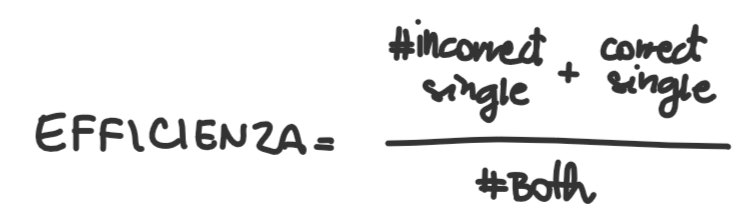 EFFICIENZA =
#incorrect single + correct single
#Both